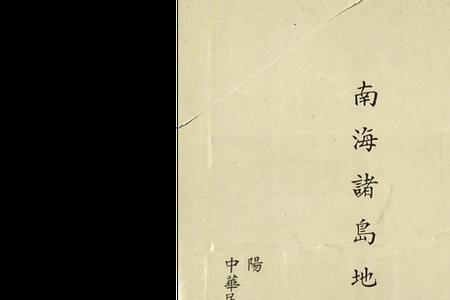 南海諸島地
陽
中華民